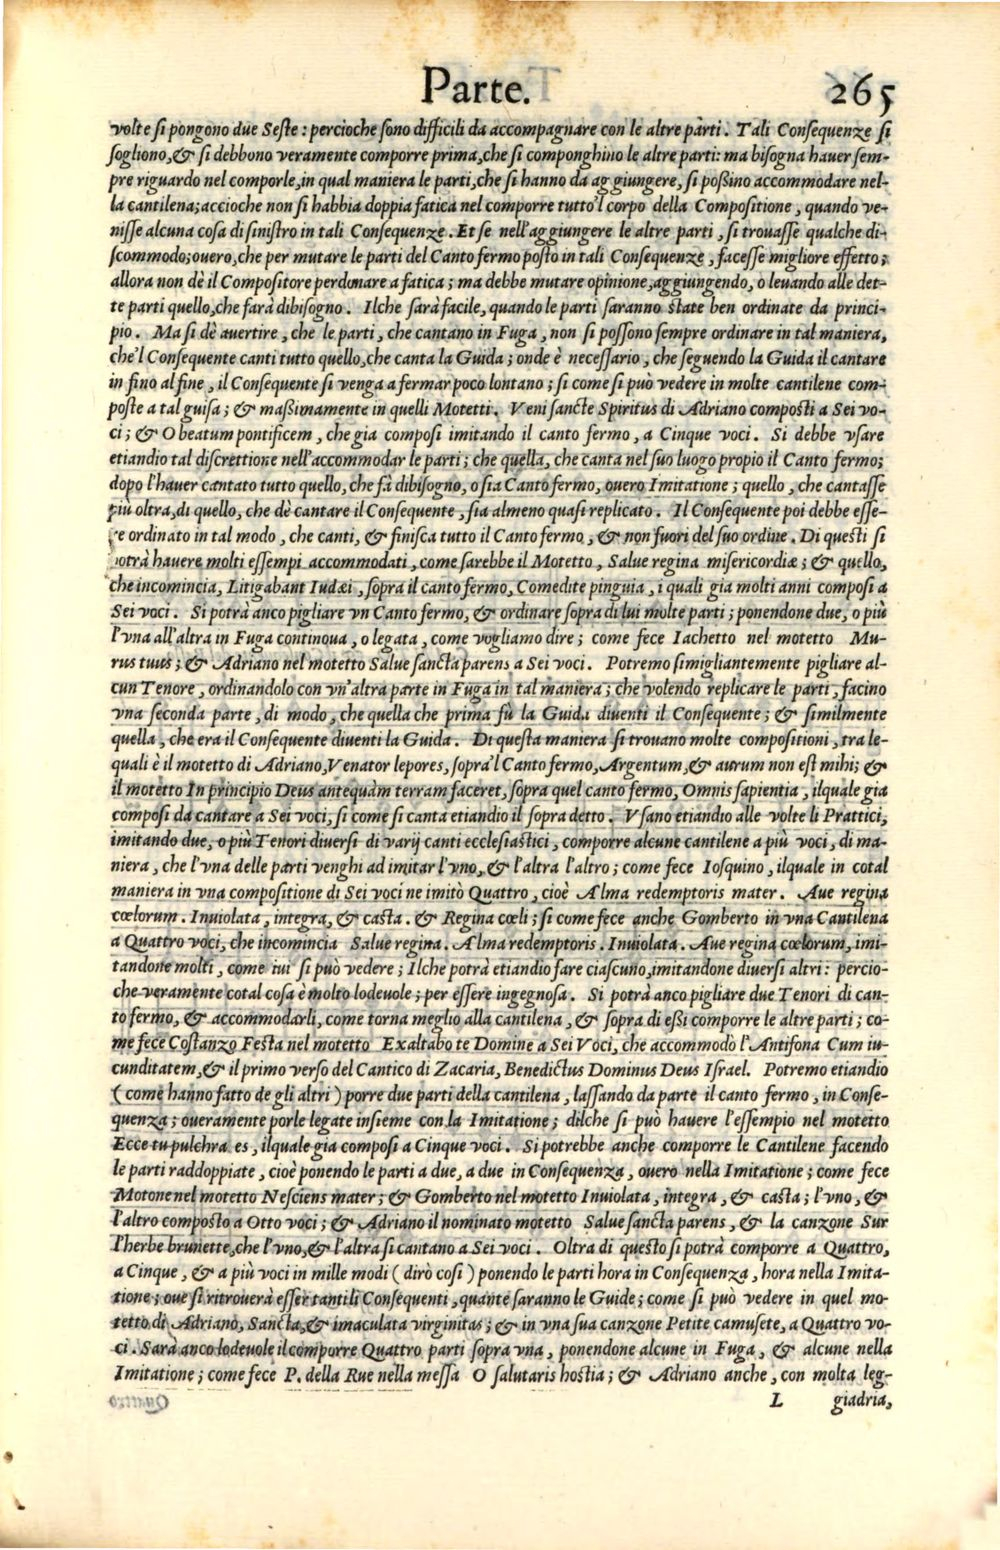 Parte. 265
volte ſi pongono due Seſte: percioche ſono difficili da accompagnare con le altre parti. Tali Conſequenze ſi
ſogliono, & ſi debbono veramente comporre prima, che ſi componghino le altre parti: ma biſogna hauer ſem-
pre riguardo nel comporle, in qual maniera le parti, che ſi hanno da aggiungere, ſi poßino accommodare nel-
la cantilena; accioche non ſi habbia doppia fatica nel comporre tutto'l corpo della Compoſitione, quando ve-
niſſe alcuna coſa di ſiniſtro in tali Conſequenze. Et ſe nell'aggiungere le altre parti, ſi trouaſſe qualche di-
ſcommodo; ouero, che per mutare le parti del Canto fermo poſto in tali Conſequenze, faceſſe migliore effetto;
allora non dè il Compoſitore perdonare a fatica; ma debbe mutare opinione, aggiungendo, o leuando alle det-
te parti quello, che farà dibiſogno. Ilche ſarà facile, quando le parti ſaranno ſtate ben ordinate da princi-
pio. Ma ſi dè auertire, che le parti, che cantano in Fuga, non ſi poſſono ſempre ordinare in tal maniera,
che'l Conſequente canti tutto quello, che canta la Guida; onde è neceſſario, che ſeguendo la Guida il cantare
in fino al fine, il Conſequente ſi venga a fermar poco lontano; ſi come ſi può vedere in molte cantilene com-
poſte a tal guiſa; & maßimamente in quelli Motetti. Veni ſancte Spiritus di Adriano compoſti a Sei vo-
ci; & O beatum pontificem, che gia compoſi imitando il canto fermo, a Cinque voci. Si debbe vſare
etiandio tal diſcrettione nell'accommodar le parti; che quella, che canta nel ſuo luogo propio il Canto fermo;
dopo l'hauer cantato tutto quello, che fà dibiſogno, o ſia Canto fermo, ouero Imitatione; quello, che cantaſſe
più oltra, di quello, che dè cantare il Conſequente, ſia almeno quaſi replicato. Il Conſequente poi debbe eſſe-
re ordinato in tal modo, che canti, & finiſca tutto il Canto fermo, & non fuori del ſuo ordine. Di queſti ſi
potrà hauere molti eſſempi accommodati, come ſarebbe il Motetto, Salue regina miſericordiæ; & quello,
che incomincia, Litigabant Iudæi, ſopra il canto fermo, Comedite pinguia, i quali gia molti anni compoſi a
Sei voci. Si potrà anco pigliare vn Canto fermo, & ordinare ſopra di lui molte parti; ponendone due, o più
l'vna all'altra in Fuga continoua, o legata, come vogliamo dire; come fece Iachetto nel motetto Mu-
rus tuus; & Adriano nel motetto Salue ſancta parens a Sei voci. Potremo ſimigliantemente pigliare al-
cun Tenore, ordinandolo con vn'altra parte in Fuga in tal maniera; che volendo replicare le parti, facino
vna ſeconda parte, di modo, che quella che prima fù la Guida diuenti il Conſequente; & ſimilmente
quella, che era il Conſequente diuenti la Guida. Di queſta maniera ſi trouano molte compoſitioni, tra le-
quali è il motetto di Adriano, Venator lepores, ſopra'l Canto fermo, Argentum, & aurum non eſt mihi; &
il motetto In principio Deus antequàm terram faceret, ſopra quel canto fermo, Omnis ſapientia, ilquale gia
compoſi da cantare a Sei voci, ſi come ſi canta etiandio il ſopra detto. Vſano etiandio alle volte li Prattici,
imitando due, o più Tenori diuerſi di varij canti eccleſiaſtici, comporre alcune cantilene a più voci, di ma-
niera, che l'vna delle parti venghi ad imitar l'vno, & l'altra l'altro; come fece Ioſquino, ilquale in cotal
maniera in vna compoſitione di Sei voci ne imitò Quattro, cioè Alma redemptoris mater. Aue regina
cœlorum. Inuiolata, integra, & caſta. & Regina cœli; ſi come fece anche Gomberto in vna Cantilena
a Quattro voci, che incomincia Salue regina. Alma redemptoris. Inuiolata. Aue regina cœlorum, imi-
tandone molti, come iui ſi può vedere; Ilche potrà etiandio fare ciaſcuno, imitandone diuerſi altri: percio-
che veramente cotal coſa è molto lodeuole; per eſſere ingegnoſa. Si potrà anco pigliare due Tenori di can-
to fermo, & accommodarli, come torna meglio alla cantilena, & ſopra di eßi comporre le altre parti; co-
me fece Coſtanzo Feſta nel motetto Exaltabo te Domine a Sei Voci, che accommodò l'Antifona Cum iu-
cunditatem, & il primo verſo del Cantico di Zacaria, Benedictus Dominus Deus Iſrael. Potremo etiandio
(come hanno fatto de gli altri) porre due parti della cantilena, laſſando da parte il canto fermo, in Conſe-
quenza; oueramente porle legate inſieme con la Imitatione; dilche ſi può hauere l'eſſempio nel motetto
Ecce tu pulchra es, ilquale gia compoſi a Cinque voci. Si potrebbe anche comporre le Cantilene facendo
le parti raddoppiate, cioè ponendo le parti a due, a due in Conſequenza, ouero nella Imitatione; come fece
Motone nel motetto Neſciens mater; & Gomberto nel motetto Inuiolata, integra, & caſta; l'vno, &
l'altro compoſto a Otto voci; & Adriano il nominato motetto Salue ſancta parens, & la canzone Sur
l'herbe brunette, che l'vno, & l'altra ſi cantano a Sei voci. Oltra di queſto ſi potrà comporre a Quattro,
a Cinque, & a più voci in mille modi (dirò coſi) ponendo le parti hora in Conſequenza, hora nella Imita-
tione; oue ſi ritrouerà eſſer tantili Conſequenti, quante ſaranno le Guide; come ſi può vedere in quel mo-
tetto di Adriano, Sancta, & imaculata virginitas; & in vna ſua canzone Petite camuſete, a Quattro vo-
ci. Sarà anco lodeuole il comporre Quattro parti ſopra vna, ponendone alcune in Fuga, & alcune nella
Imitatione; come fece P. della Rue nella meſſa O ſalutaris hoſtia; & Adriano anche, con molta leg-
L giadria,